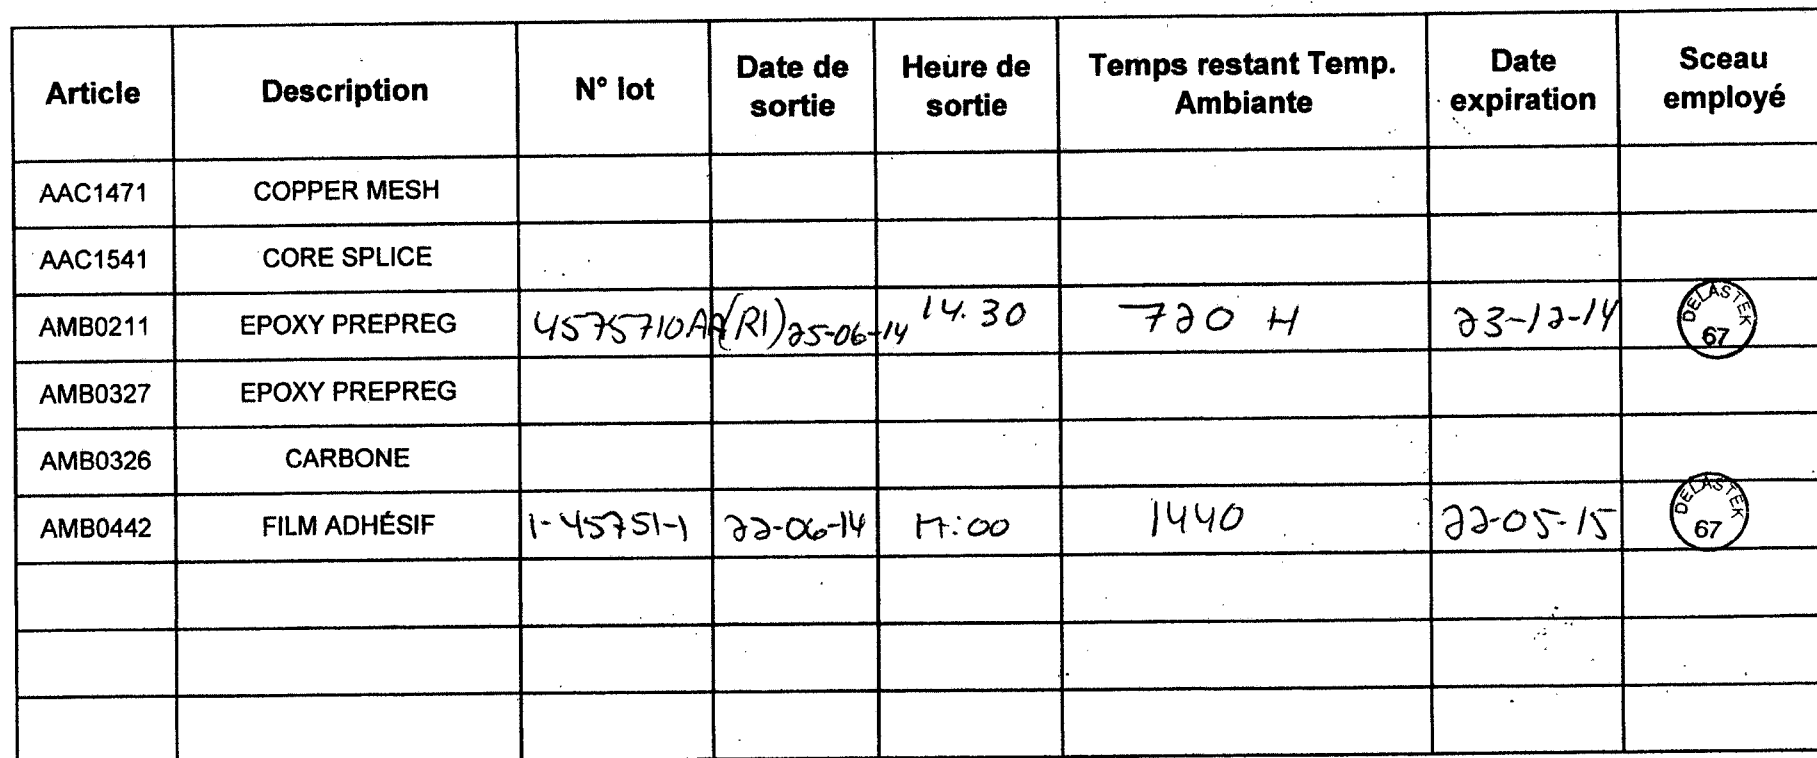 Article Description N° lot Date de sortie Heure de sortie Temps restant Temp. Ambiante Date expiration Sceau employé
AAC1471 COPPER MESH
AAC1541 CORE SPLICE
AMB0211 EPOXY PREPREG 4575710AA(R1) 25-06-14 14.30 720 H 23-12-14 DELASTEK 67
AMB0327 EPOXY PREPREG
AMB0326 CARBONE
AMB0442 FILM ADHÉSIF 1-45751-1 22-06-14 17:00 1440 22-05-15 DELASTEK 67